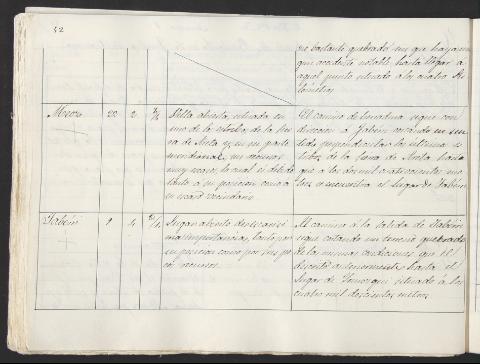 52
ne bastante quebrado sin que haya nin
que accidente notable hasta llegar á
aquel punto situado á los cuatro Ki
lómetros
Mezo
22
2
Villa abierta, situada en
una de las
de Anta y en su parte
meridional, de recursos
muy escasos, lo cual es debido
tanto á su posicion como á
su escaso vecindario
El camino de herradura sigue con
direccion á Jabein cortando en sen
tido perpendicular las últimas es
de la Sierra de Anta hasta
que á los dos mil cuatrocientos me
tros se encuentra el lugar de Jabein
Jabein
9
4
Lugar abierto de escasisi
ma importancia, tanto por
su posicion como por sus po
cos recursos
El camino á la salida de Jabein
sigue cortando un terreno quebrado
de las mismas condiciones que el
descrito anteriormente hasta el
lugar de
situado á los
cuatro mil doscientos metros